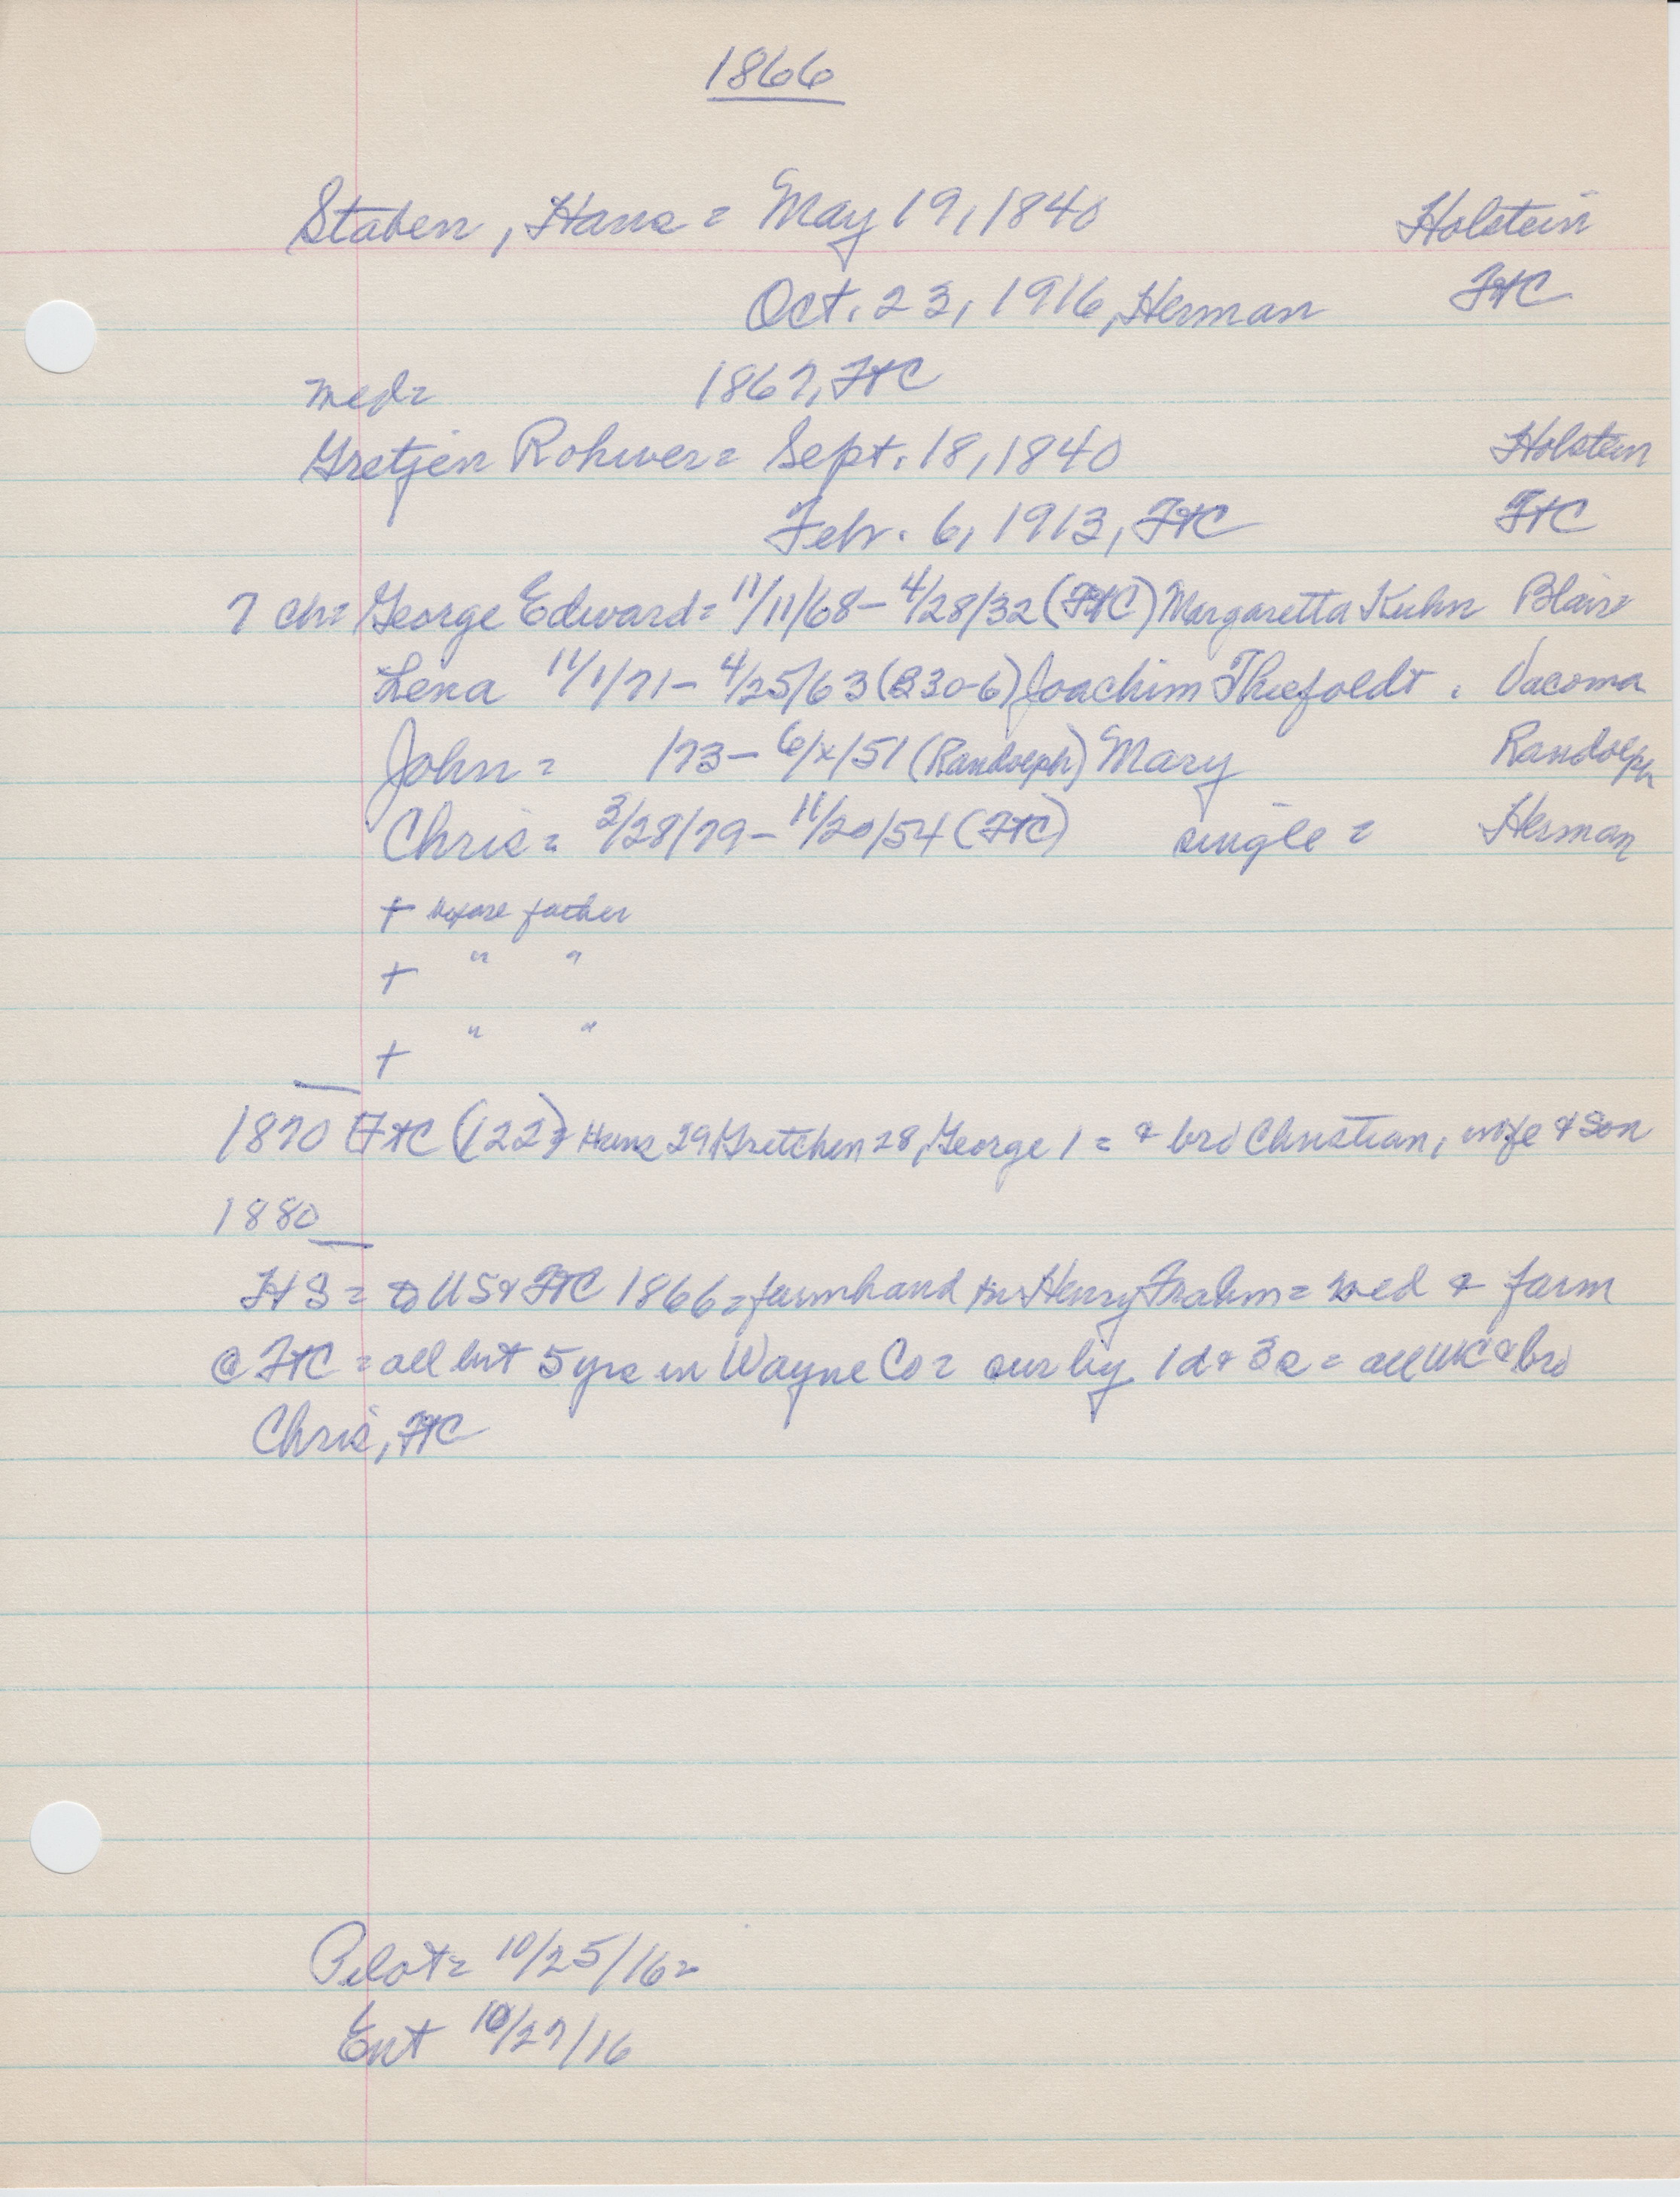 1866
Staben, Hans = May 19, 1840 Holstein
Oct. 23, 1916, Herman FtC
med = 1867, FtC
Gretjen Rohwer = Sept. 18, 1840 Holstein
Febr. 6, 1913, FtC FtC
7 ch = George Edward = 11/11/68 - 4/28/32 (FtC) Margaretta Kuhn Blair =
Lena 11/1/71 - 4/25/63 (B30-6) Joachim Thiefoldt. Vacoma
John = /73 - 6/x/51 (Randolph) Mary Randolph
Chris = 3/28/79 - 11/20/54 (FtC) single = Herman
+ before father
+ " "
+ " "
1870 FtC (122) Hans 29 Gretchen 28, George 1 = & bro Christian, wife & son
1880
HS = to US & FtC 1866 = farmhand Henry Frahm = med & farm
@ FtC = all but 5 yrs in Wayne Co = sur by 1 d & 3 s = all & bro
Chris, FtC
Pilot = 10/25/16 =
Ent 10/27/16